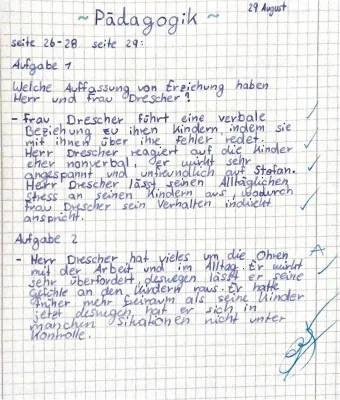 ~ Pädagogik ~ 29 August
seite 26-28. seite 29:
Aufgabe 1
Welche Auffassung von Erziehung haben
Herr und frau Drescher?
- frau Drescher führt eine verbale
Beziehung zu ihren Kindern, indem sie
mit ihnen über ihre fehler redet.
Herr Drescher reagiert auf die Kinder
eher nonverbal, er wirkt sehr
angespannt und unfreundlich auf Stefan.
Herr Drescher lässt seinen Alltäglichen
stress an seinen Kindern aus wodurch
frau Drescher sein Verhalten indirekt
anspricht.
Aufgabe 2
- Herr Drescher hat vieles um die Ohren
mit der Arbeit und im Alltag. Er wirkt
sehr überfordert, deswegen lässt er seine
Gefühle an den Kindern raus. Er hatte
früher mehr freiraum als seine Kinder
jetzt deswegen hat er sich in
manchen situationen nicht unter
Kontrolle.